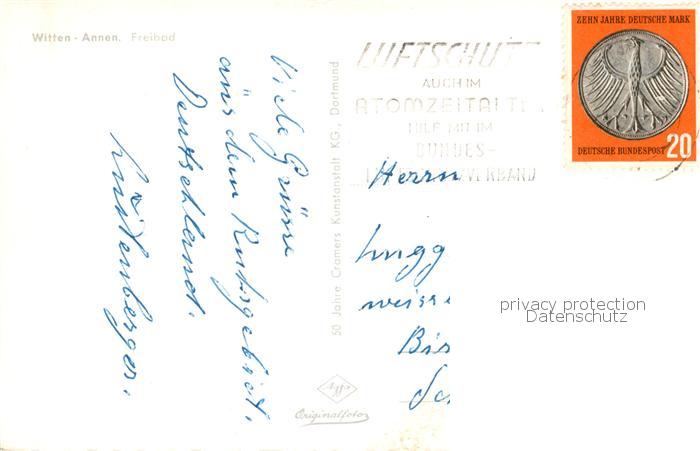 Witten - Annen. Freibad
Viele Grüsse
aus dem Ruhrgebiet,
Deutschland.
50 Jahre Cramers Kunstanstalt KG., Dortmund
Agfa
Originalfoto
LUFTSCHUTZ
AUCH IM
ATOMZEITALTER
HILF MIT IM
BUNDES-
VERBAND
ZEHN JAHRE DEUTSCHE MARK
DEUTSCHE BUNDESPOST 20
Herrn
weisse
privacy protection
Datenschutz